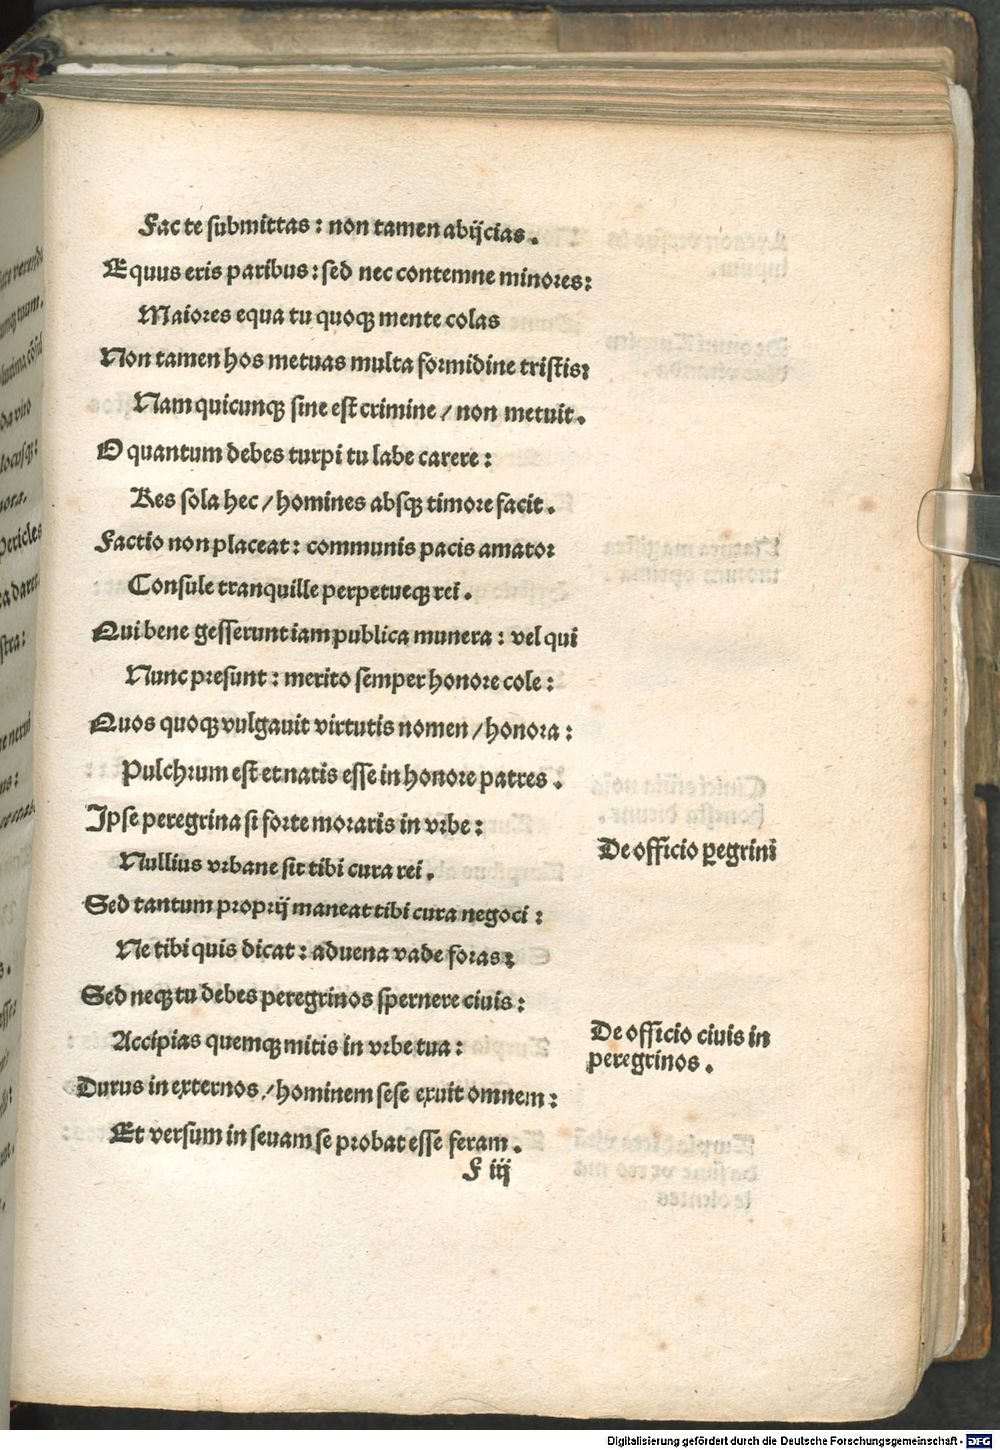 Fac te submittas : non tamen abijcias .
Equus eris paribus : sed nec contemne minores :
Maiores equa tu quoqꝫ mente colas
Non tamen hos metuas multa formidine tristis :
Nam quicunqꝫ sine est crimine / non metuit .
O quantum debes turpi tu labe carere :
Res sola hec / homines absqꝫ timore facit .
Factio non placeat : communis pacis amator
Consule tranquille perpetueqꝫ rei .
Qui bene gesserunt iam publica munera : vel qui
Nunc presunt : merito semper honore cole :
Quos quoqꝫ vulgauit virtutis nomen / honora :
Pulchrum est et natis esse in honore patres .
Ipse peregrina si forte moraris in vrbe :
Nullius vrbane sit tibi cura rei .
De officio ꝑegrini
Sed tantum proprij maneat tibi cura negoci :
Ne tibi quis dicat : aduena vade foras :
Sed neqꝫ tu debes peregrinos spernere ciuis :
Accipias quemqꝫ mitis in vrbe tua :
De officio ciuis in
peregrinos .
Durus in externos / hominem sese exuit omnem :
Et versum in seuam se probat esse feram .
F iij
Digitalisierung gefördert durch die Deutsche Forschungsgemeinschaft - DFG